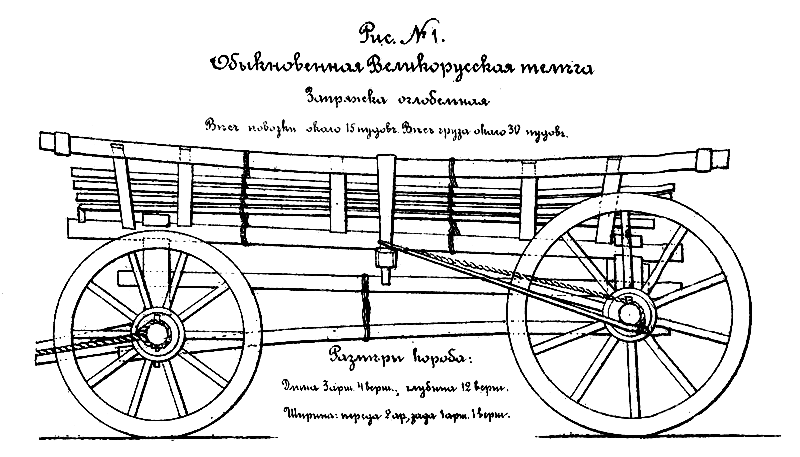 Рис. №1.
Обыкновенная Великорусская телѣга
Запряжка оглобельная
Вѣсъ повозки около 15 пудовъ. Вѣсъ груза около 30 пудовъ.
Размѣры короба:
Длина 3 арш. 4 верш., глубина 12 верш.
Ширина: переда 2 ар, зада 1 арш. 1 верш.